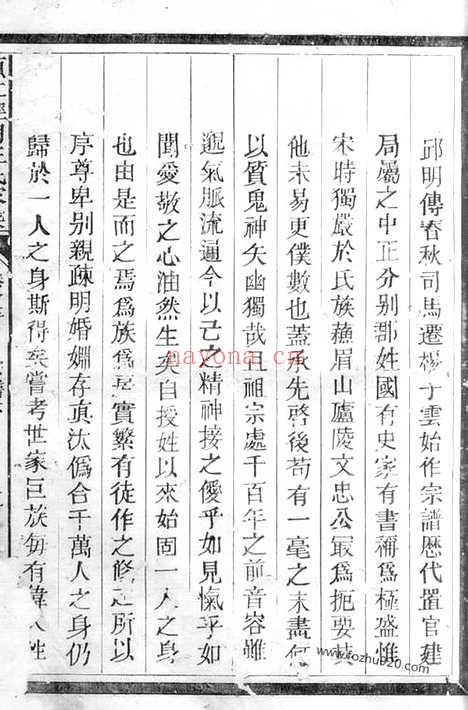 邱明傳春秋司馬遷楊子雲始作宗譜歷代置官建
局屬之中正分别郡姓國有史家有書稱爲極盛惟
宋時獨嚴於氏族蘓眉山廬陵文忠公最爲扼要其
他未易更僕數也蓋承先啓後苟有一毫之未盡何
以質鬼神矢幽獨哉且祖宗處千百年之前音容雖
邈氣脈流通今以己之精神接之僾乎如見愾乎如
聞愛敬之心油然生矣自授姓以來始固一人之身
也由是而之焉爲族爲 實繁有徒作之修之所以
序尊卑别親疎明婚姻存真汰僞合千萬人之身仍
歸於一人之身斯得矣嘗考世家巨族每有偉人
nayona.cn
www.fozhu920.com